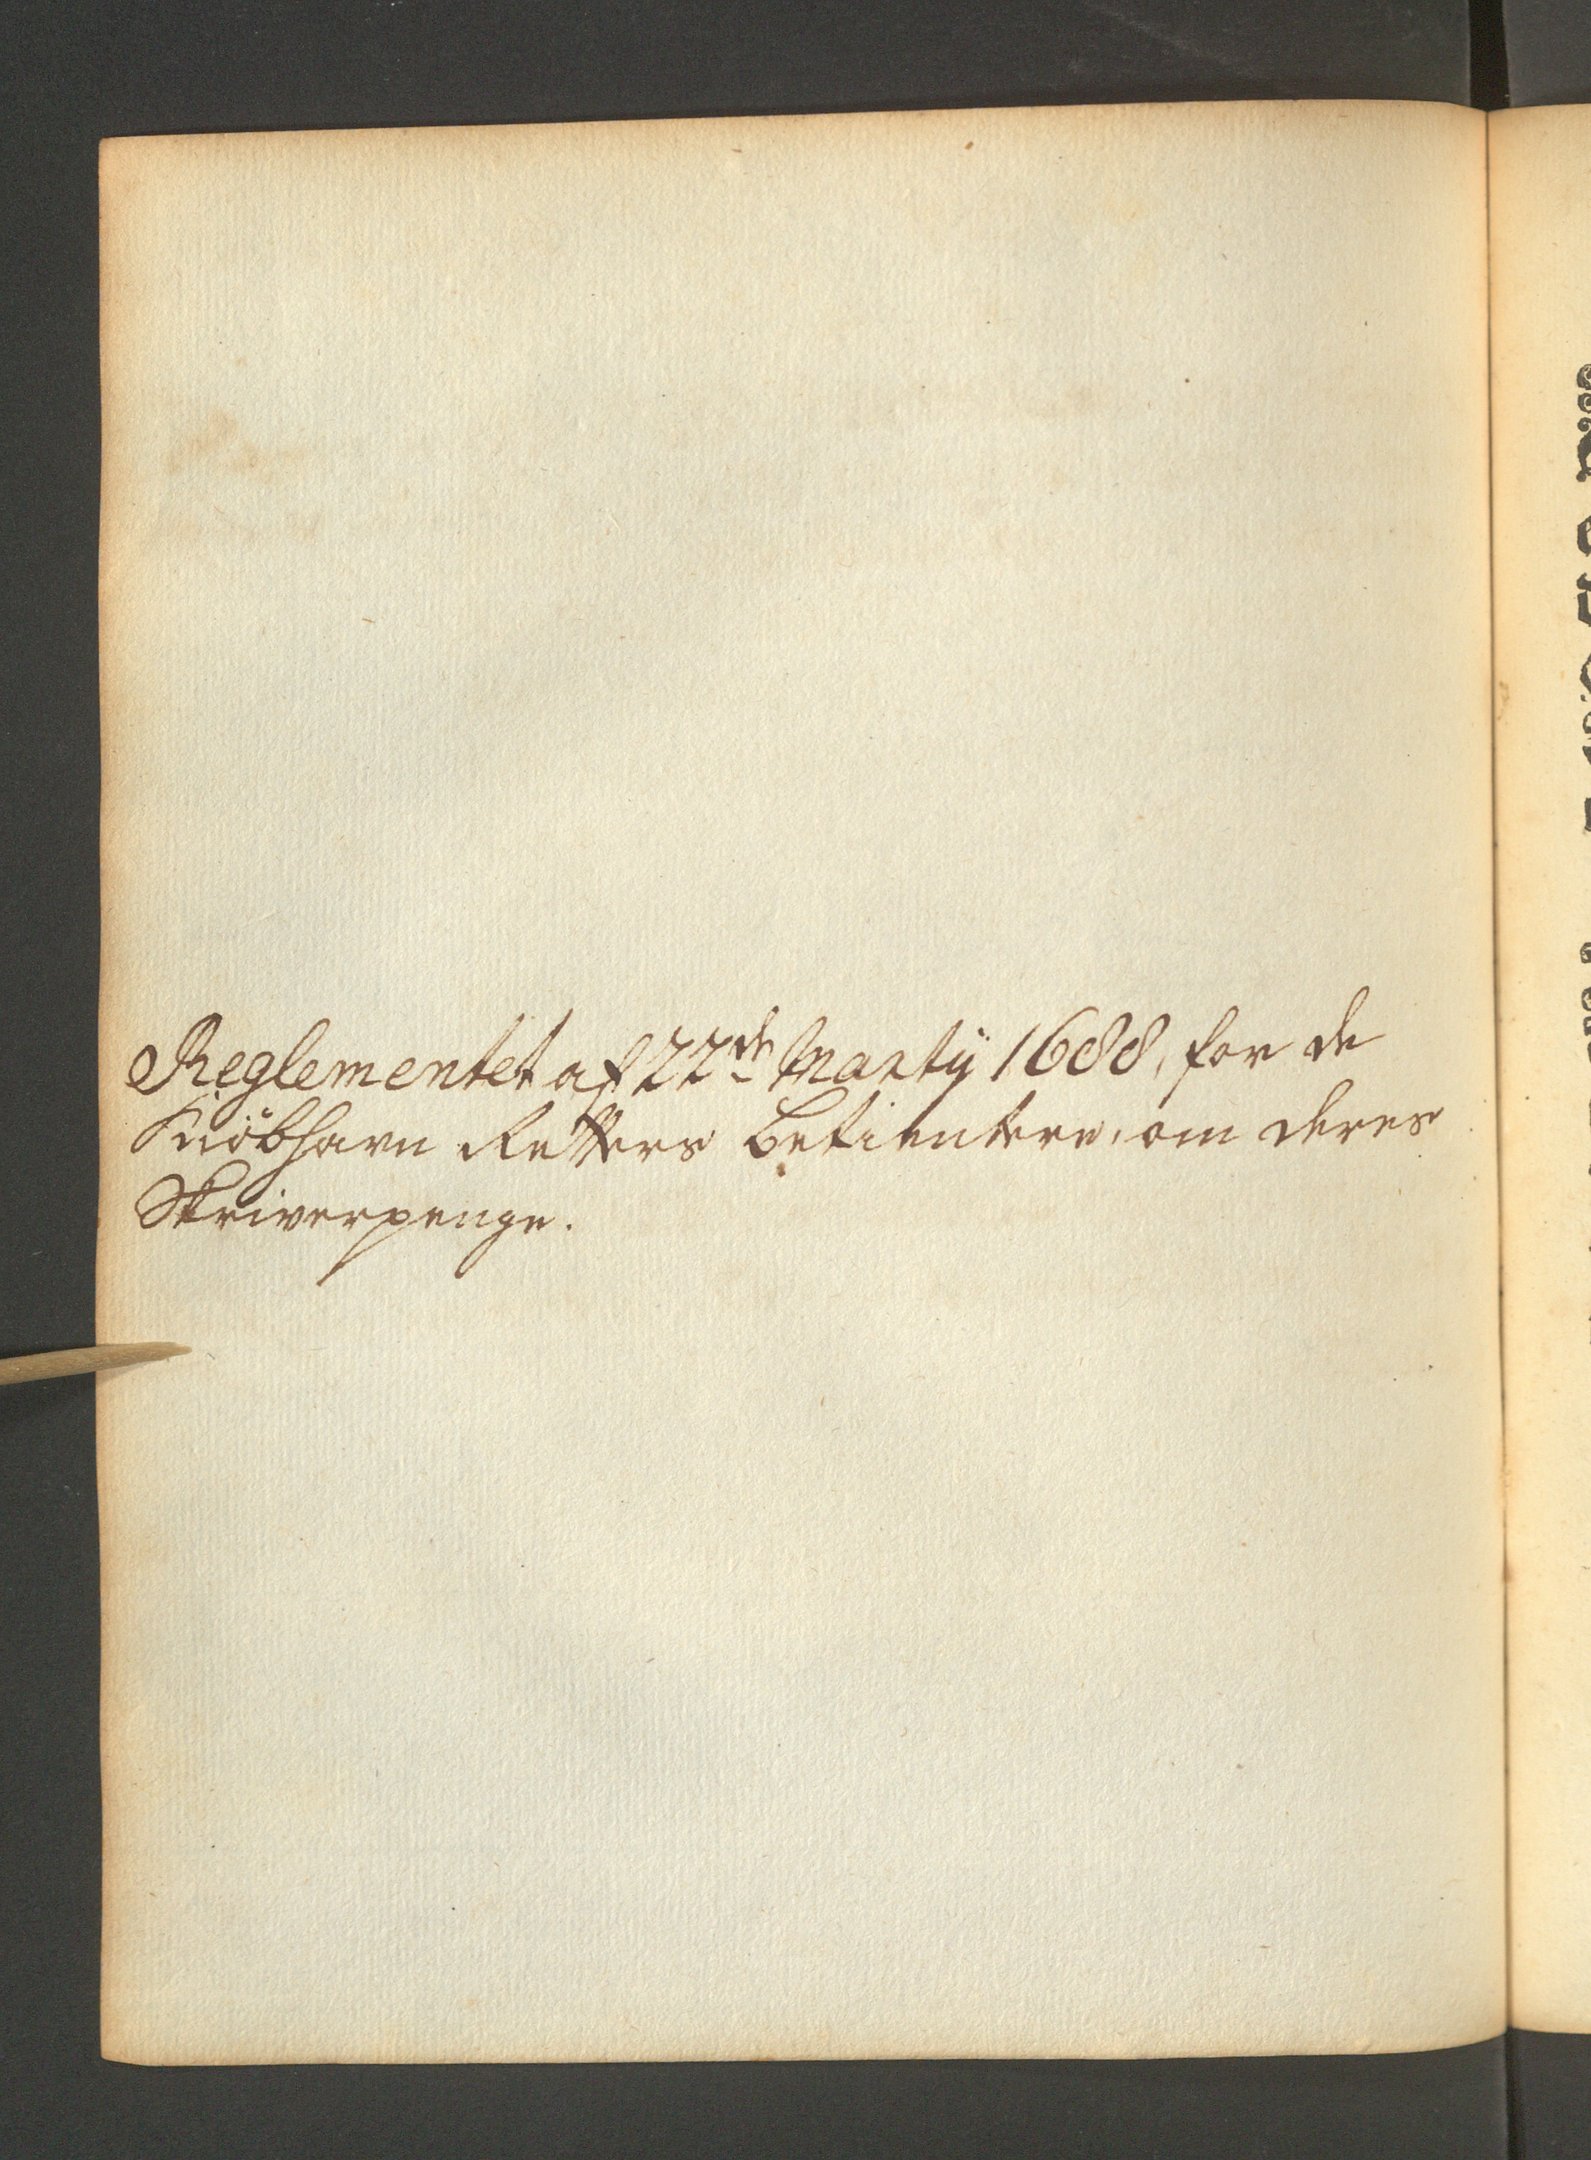 Reglementet af 22de Martij 1688, for de
Kiöbhavn Retters betientere, om deres
Skriverpenge.